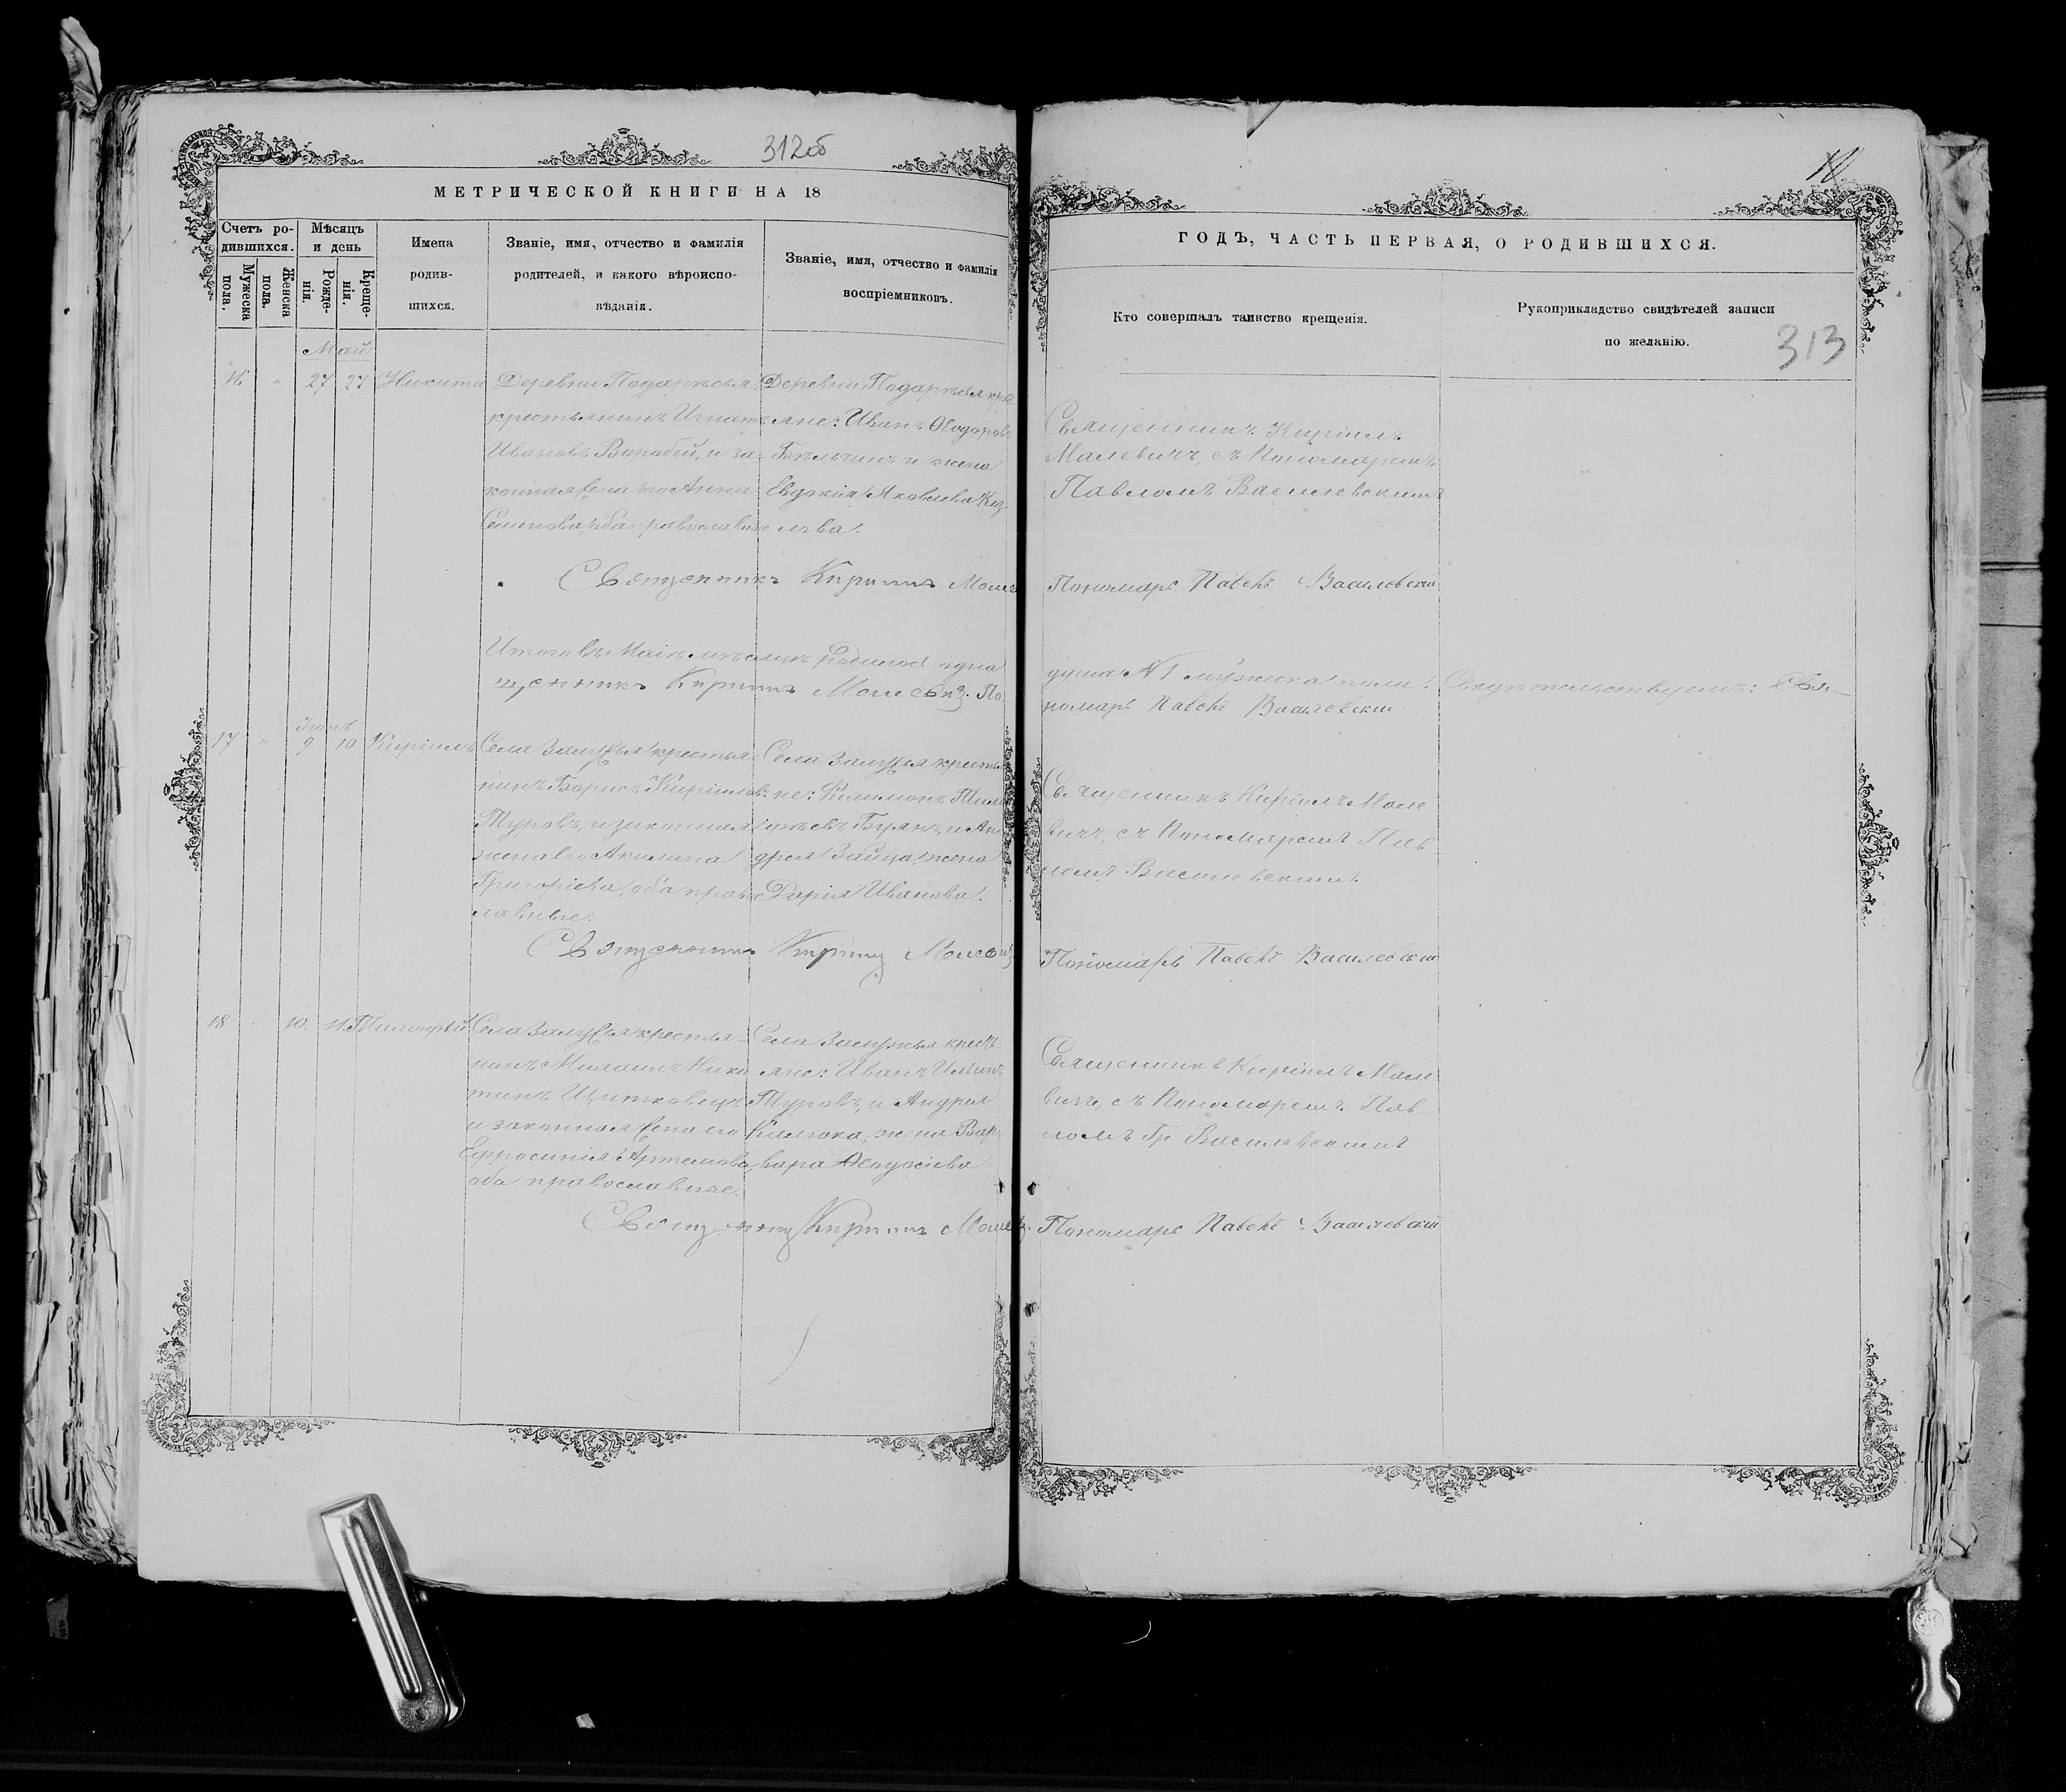 312об
МЕТРИЧЕСКОЙ КНИГИ НА 18
Счетъ ро-
дившихся.
Мужеска
пола.
Женска
пола.
Мѣсяцъ
и день
Рожде-
нія.
Креще-
нія.
Имена
родив-
шихся.
Званіе, имя, отчество и фамилія
родителей, и какого вѣроиспо-
вѣданія.
Званіе, имя, отчество и фамилія
воспріемниковъ.
Май
16 " 27 27 Никита
Деревни Подарѣсья
крестьянинъ Игнатъ
Ивановъ Воробей, и за-
конная жена его Анна
Семенова, оба православн.
Деревни Подарѣсья кре
яне: Иванъ Ѳеодоровъ
и жена
Евдокія Яковлева
Священникъ Кирилъ
Итого въ Маѣ мѣсяцѣ родилась одна
щенникъ Кирилъ По
Іюнь
17 " 9 10 Кириллъ
Села Залужья крестья-
нинъ Борисъ Кирилловъ
Туровъ, и законная
жена его Акилина
Григоріева, оба правос
лавные.
Села Залужья крестья
не: Филимонъ
Бурякъ, и Ан
дрея Зайца жена
Дарія Иванова.
Священникъ Кирилъ
18 " 10. 11. Тимофей
Села Залужья крестья-
нинъ Михаилъ Ники
тинъ
и законная жена его
Ефросинія Артемова
оба православные.
Села Залужья крест
яне: Иванъ
Туровъ, и Андрея
Калюка, жена Вар
вара Ѳеодосіева
Священникъ Кирилъ
ГОДЪ, ЧАСТЬ ПЕРВАЯ, О РОДИВШИХСЯ.
Кто совершалъ таинство крещенія.
Рукоприкладство свидѣтелей записи
по желанію.
313
Священникъ Кириллъ
Малевичъ, съ Пономаремъ
Павломъ Василевскимъ
Пономарь Павелъ Василевскій
душа № 1 мужска пола. Свидѣтельствуемъ: Свя-
номарь Павелъ Василевскій
Священникъ Кириллъ Мале
вичъ, съ Пономаремъ Пав
ломъ Василевскимъ
Пономарь Павелъ Василевскій
Священникъ Кириллъ Мале
вичъ, съ Пономаремъ Пав-
ломъ Гр. Василевскимъ
Пономарь Павелъ Василевскій